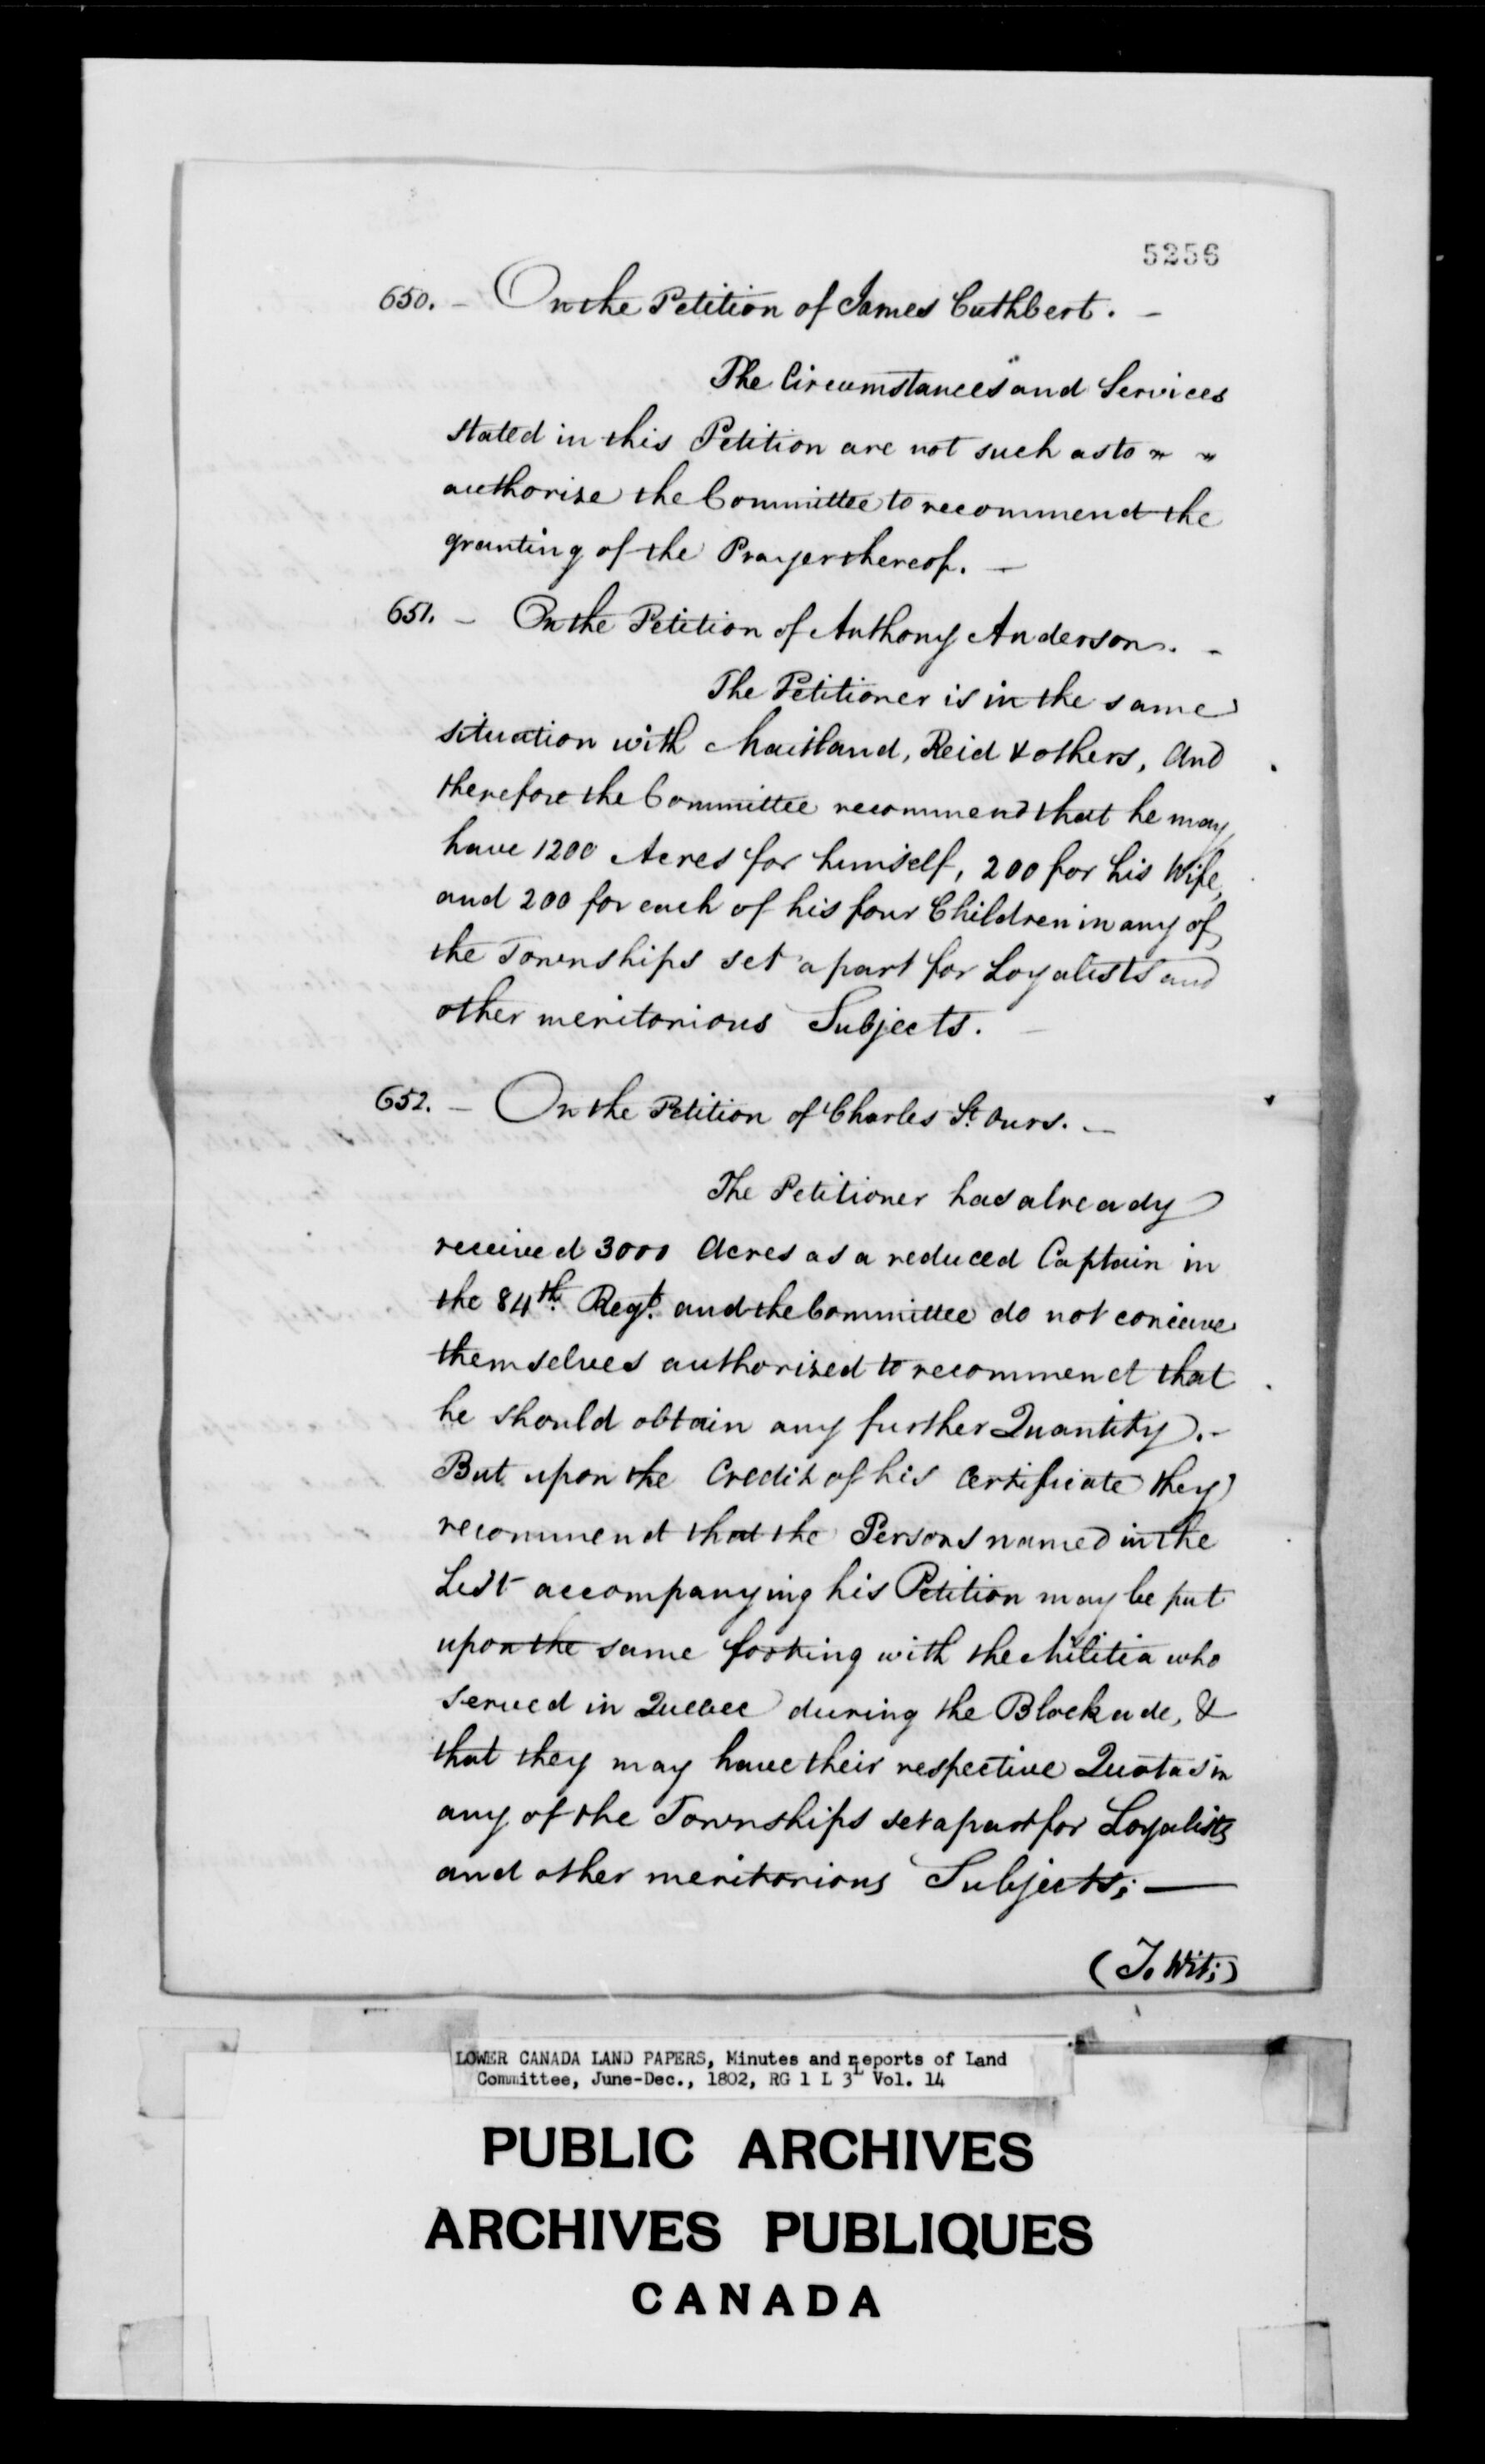 5256
650. – On the Petition of James Cuthbert. –
The Circumstances and Services
stated in this Petition are not such as to " "
authorise the Committee to recommend the
granting of the Prayer thereof. –
651. – On the Petition of Anthony Anderson. –
The Petitioner is in the same
situation with Maitland, Reid & others, And
therefore the Committee recommend that he may
have 1200 Acres for himself, 200 for his Wife,
and 200 for each of his four Children in any of
the Townships set apart for Loyalists and
other meritorious Subjects. –
652. – On the Petition of Charles St. Ours. –
The Petitioner has already
received 3000 Acres as a reduced Captain in
the 84th. Regt. and the Committee do not conceive
themselves authorized to recommend that
he should obtain any further Quantity. –
But upon the Credit of his Certificate they
recommend that the Persons named in the
List accompanying his Petition may be put
upon the same footing with the Militia who
served in Quebec during the Blockade, &
that they may have their respective Quotas in
any of the Townships set apart for Loyalists
and other meritorious Subjects; —
(To Wit;)
LOWER CANADA LAND PAPERS, Minutes and reports of Land
Committee, June-Dec., 1802, RG 1 L 3L Vol. 14
PUBLIC ARCHIVES
ARCHIVES PUBLIQUES
CANADA